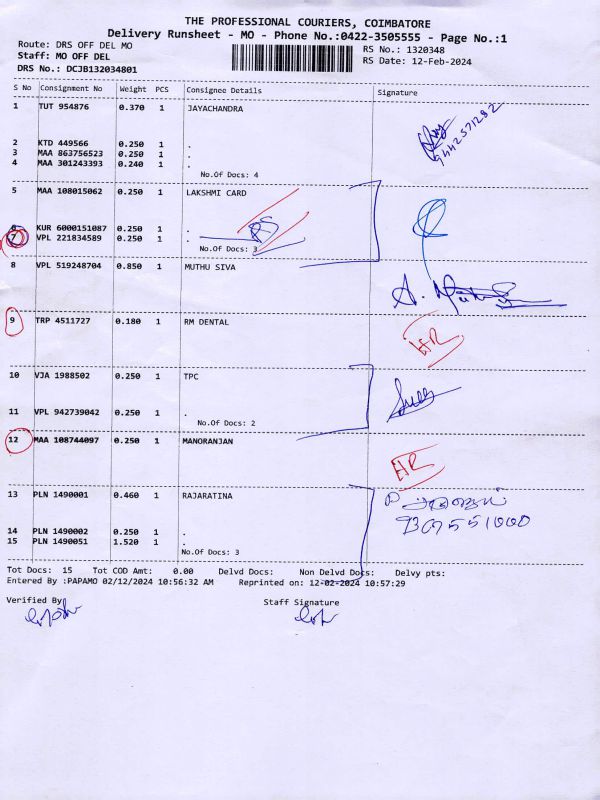 THE PROFESSIONAL COURIERS, COIMBATORE
Delivery Runsheet - MO - Phone No.:0422-3505555 - Page No.:1
Route: DRS OFF DEL MO RS No.: 1320348
Staff: MO OFF DEL RS Date: 12-Feb-2024
DRS No.: DCJB132034801
S No Consignment No Weight PCS Consignee Details Signature
1 TUT 954876 0.370 1 JAYACHANDRA
9442571282
2 KTD 449566 0.250 1 .
3 MAA 863756523 0.250 1 .
4 MAA 301243393 0.240 1 .
No.Of Docs: 4
5 MAA 108015062 0.250 1 LAKSHMI CARD
6 KUR 6000151087 0.250 1 .
RS
7 VPL 221834589 0.250 1 .
No.Of Docs: 3
8 VPL 519248704 0.850 1 MUTHU SIVA
9 TRP 4511727 0.180 1 RM DENTAL
HR
10 VJA 1988502 0.250 1 TPC
11 VPL 942739042 0.250 1 .
No.Of Docs: 2
12 MAA 108744097 0.250 1 MANORANJAN
HR
13 PLN 1490001 0.460 1 RAJARATINA
14 PLN 1490002 0.250 1 .
15 PLN 1490051 1.520 1 .
No.Of Docs: 3
Tot Docs: 15 Tot COD Amt: 0.00 Delvd Docs: Non Delvd Docs: Delvy pts:
Entered By :PAPAMO 02/12/2024 10:56:32 AM Reprinted on: 12-02-2024 10:57:29
Verified By Staff Signature